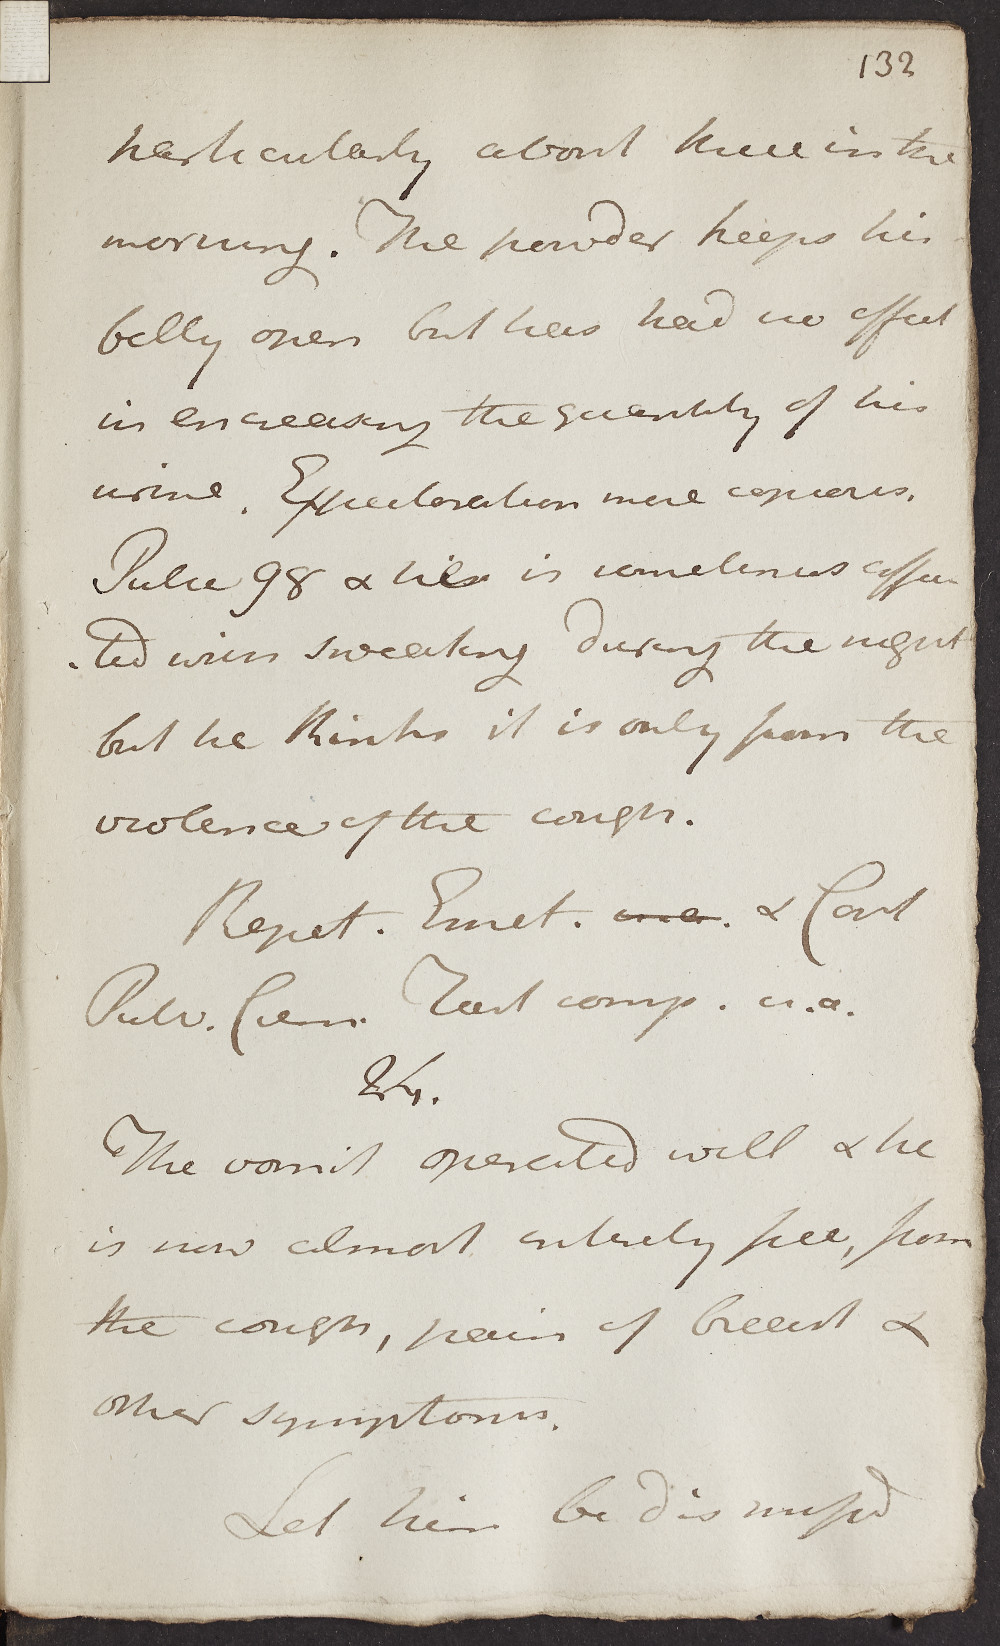 132
particularly about three in the
morning. The powder keeps his
belly open but has had no effect
in encreasing the quantity of his
urine. Expectoration more copious.
Pulse 98 & he is sometimes affec
-ted with sweating during the night
but he thinks it is only from the
violence of the cough.
Repet. Emet. & Cont
Pulv. Crem. Tart comp. u.a.
24.
The vomit operated well & he
is now almost entirely free, from
the cough, pain of breast &
other symptoms.
Let him be dismissd